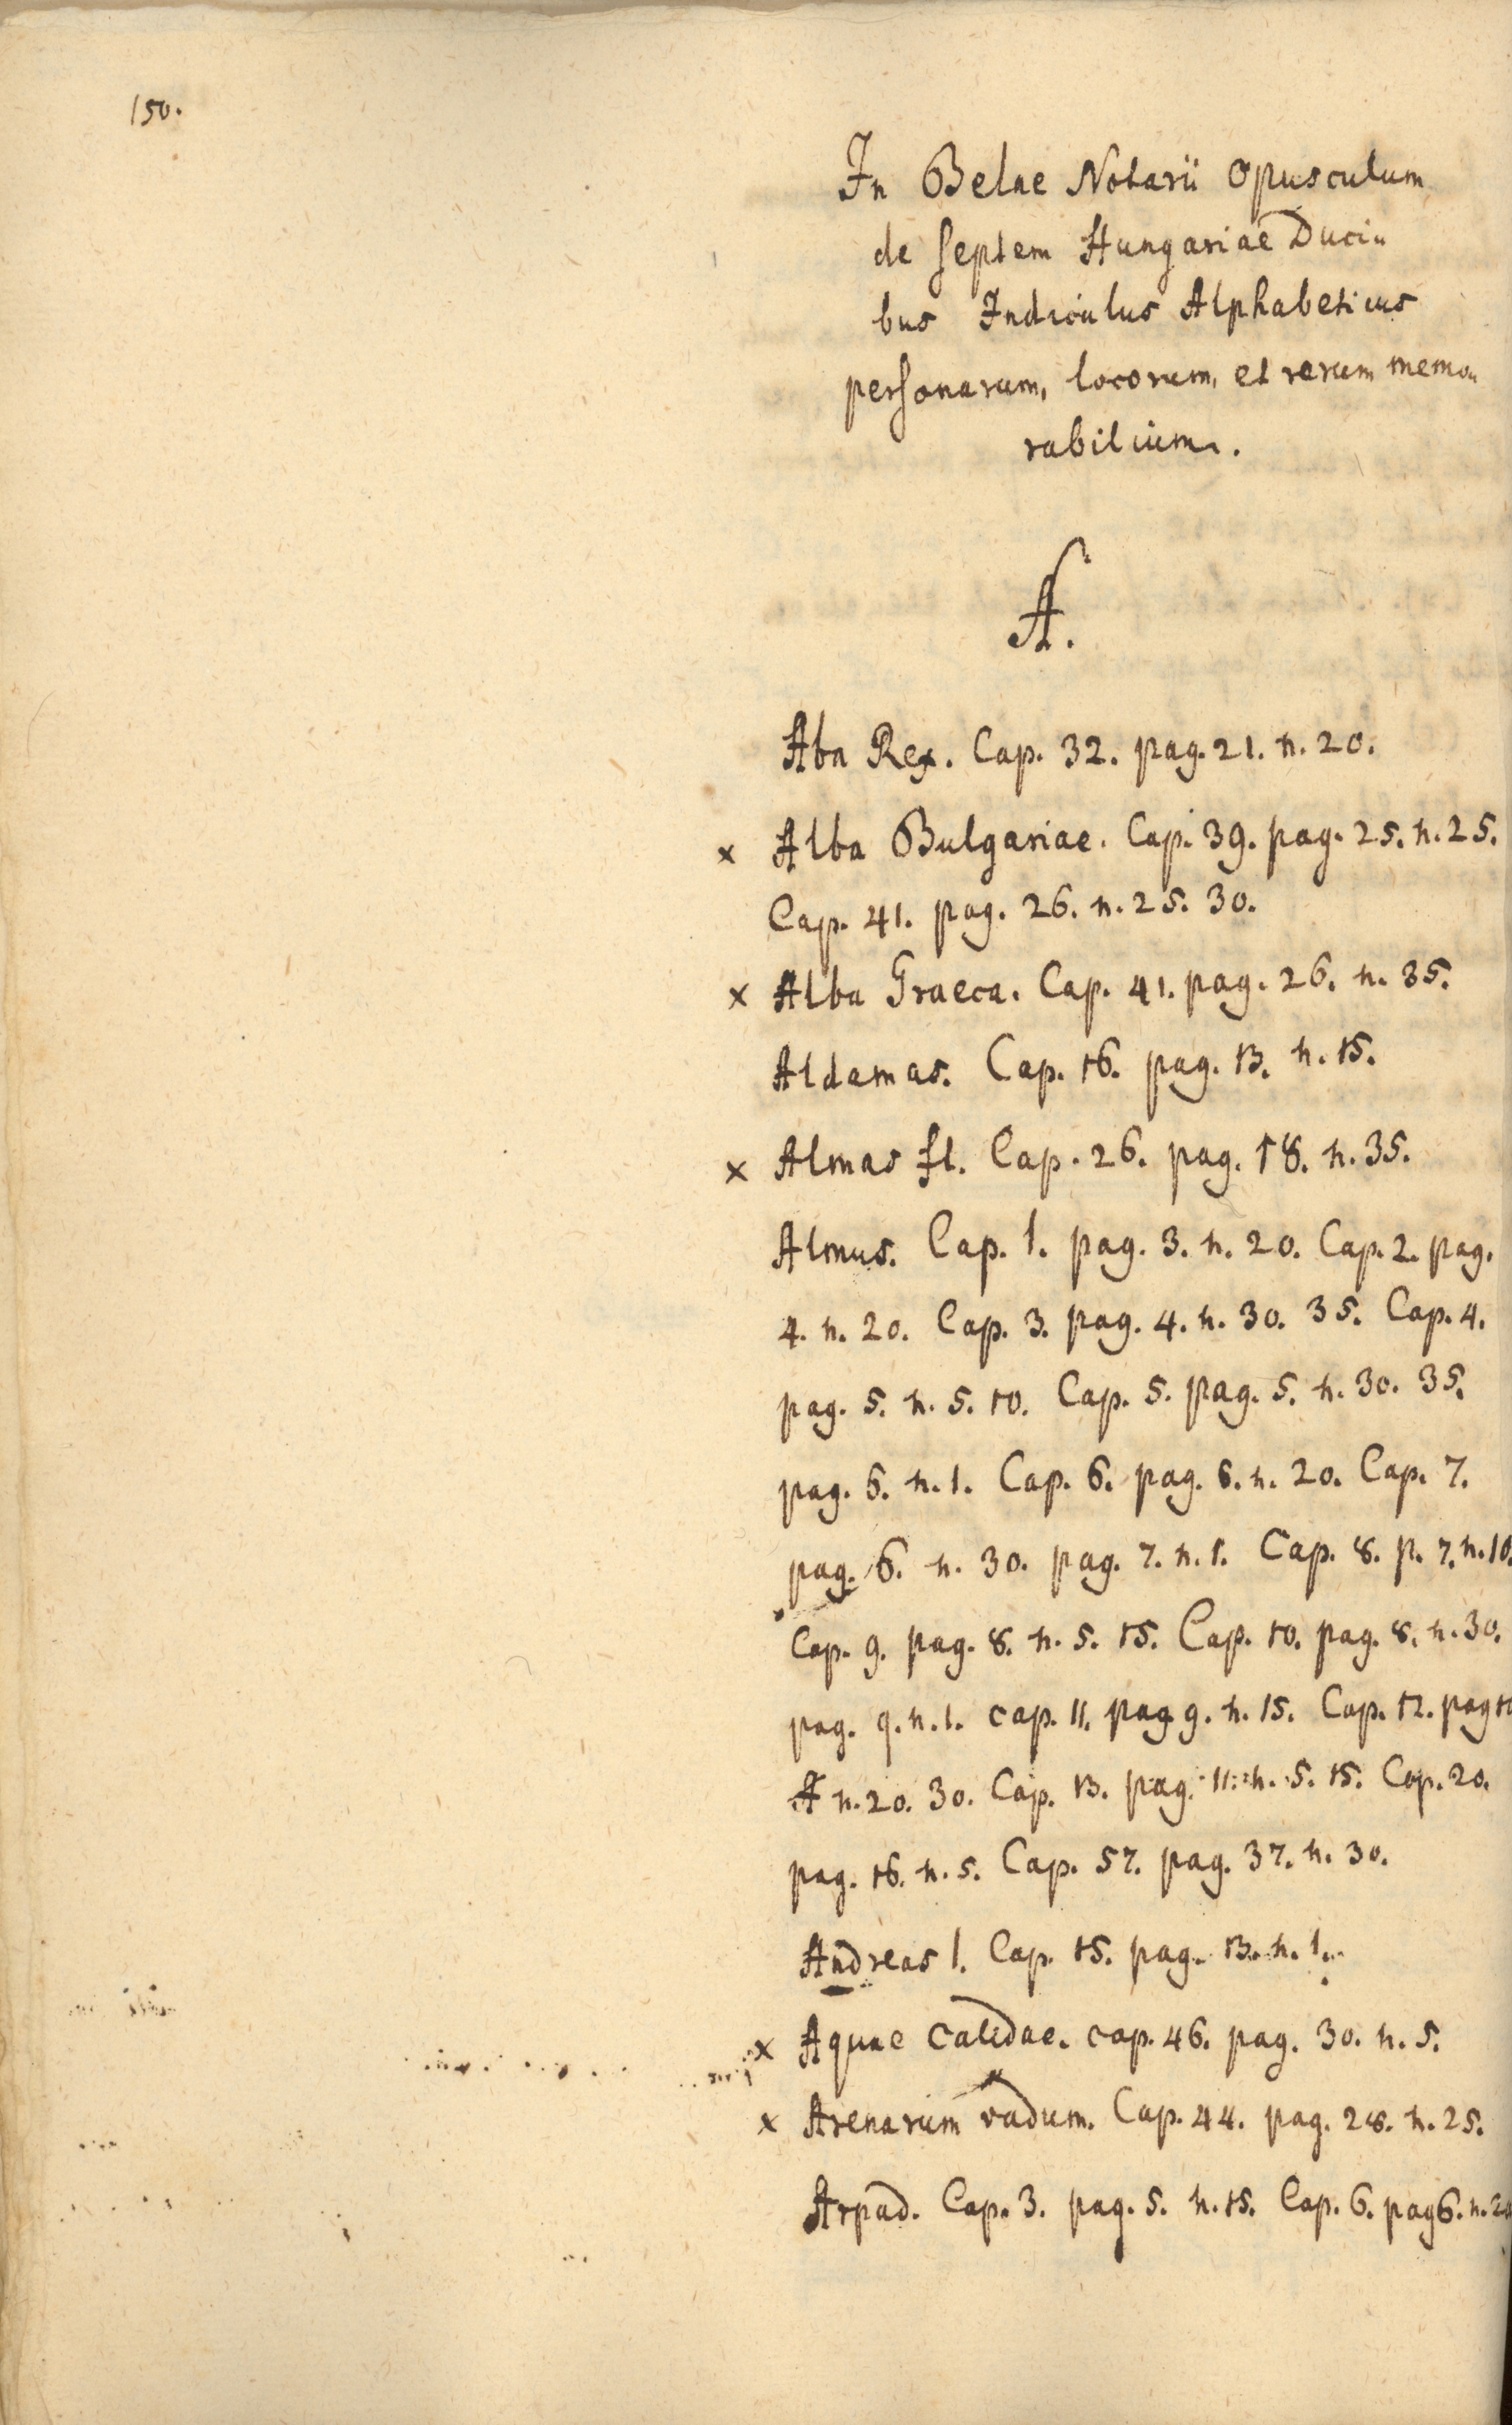 150.
In Belae Notarii Opusculum
de septem Hungariae Duci„
bus Indiculus Alphabeticus
personarum, locorum, et rerum memo„
rabilium.
A.
Aba Rex. Cap. 32. pag. 21. n. 20.
x Alba Bulgariae. Cap. 39. pag. 25. n. 25.
Cap. 41. pag. 26. n. 25. 30.
x Alba Graeca. Cap. 41. pag. 26. n. 35.
Aldamas. Cap. 16. pag. 13. n. 15.
x Almas fl. Cap. 26. pag. 18. n. 35.
Almus. Cap. 1. pag. 3. n. 20. Cap. 2. pag.
4. n. 20. Cap. 3. pag. 4. n. 30. 35. Cap. 4.
pag. 5. n. 5. 10. Cap. 5. pag. 5. n. 30. 35.
pag. 6. n. 1. Cap. 6. pag. 6. n. 20. Cap. 7.
pag. 6. n. 30. pag. 7. n. 1. Cap. 8. p. 7. n. 10.
Cap. 9. pag. 8. n. 5. 15. Cap. 10. pag. 8. n. 30.
pag. 9. n. 1. cap. 11. pag 9. n. 15. Cap. 12. pag 10
n. 20. 30. Cap. 13. pag. 11. n. 5. 15. Cap. 20.
pag. 16. n. 5. Cap. 57. pag. 37. n. 30.
Andreas 1. Cap. 15. pag. 13. n. 1.
x Aquae Calidae. cap. 46. pag. 30. n. 5.
x Arenarum vadum. Cap. 44. pag. 28. n. 25.
Arpad. Cap. 3. pag. 5. n. 15. Cap. 6. pag 6. n. 20